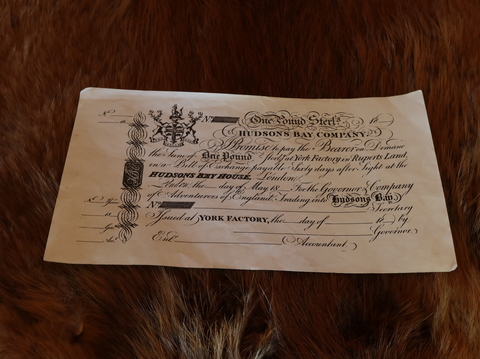 Nº One Pound Sterlg. 18
HUDSONS BAY COMPANY.
Promise to pay the Bearer on Demand
the Sum of One Pound Sterlg at York Factory in Ruperts Land
in a Bill of Exchange payable Sixty days after Sight at the
HUDSONS BAY HOUSE, London
London, the day of May 18 For the Governor & Company
of Adventurers of England, Trading into Hudsons Bay.
Nº Secretary
Issued at YORK FACTORY, the day of 18 by
Governor.
Entd. Accountant.